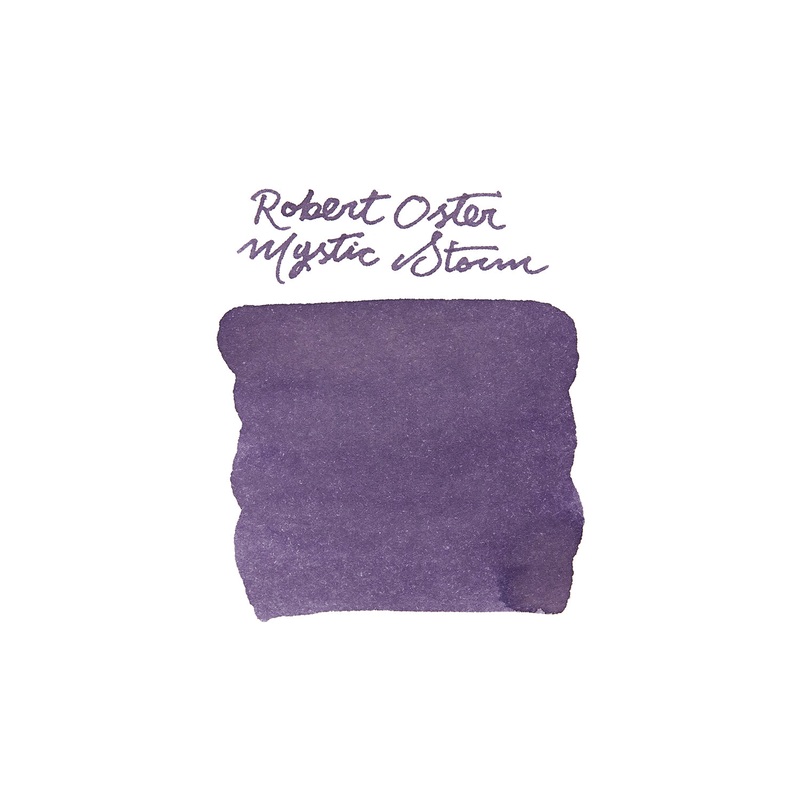 Robert Oster
Mystic Storm